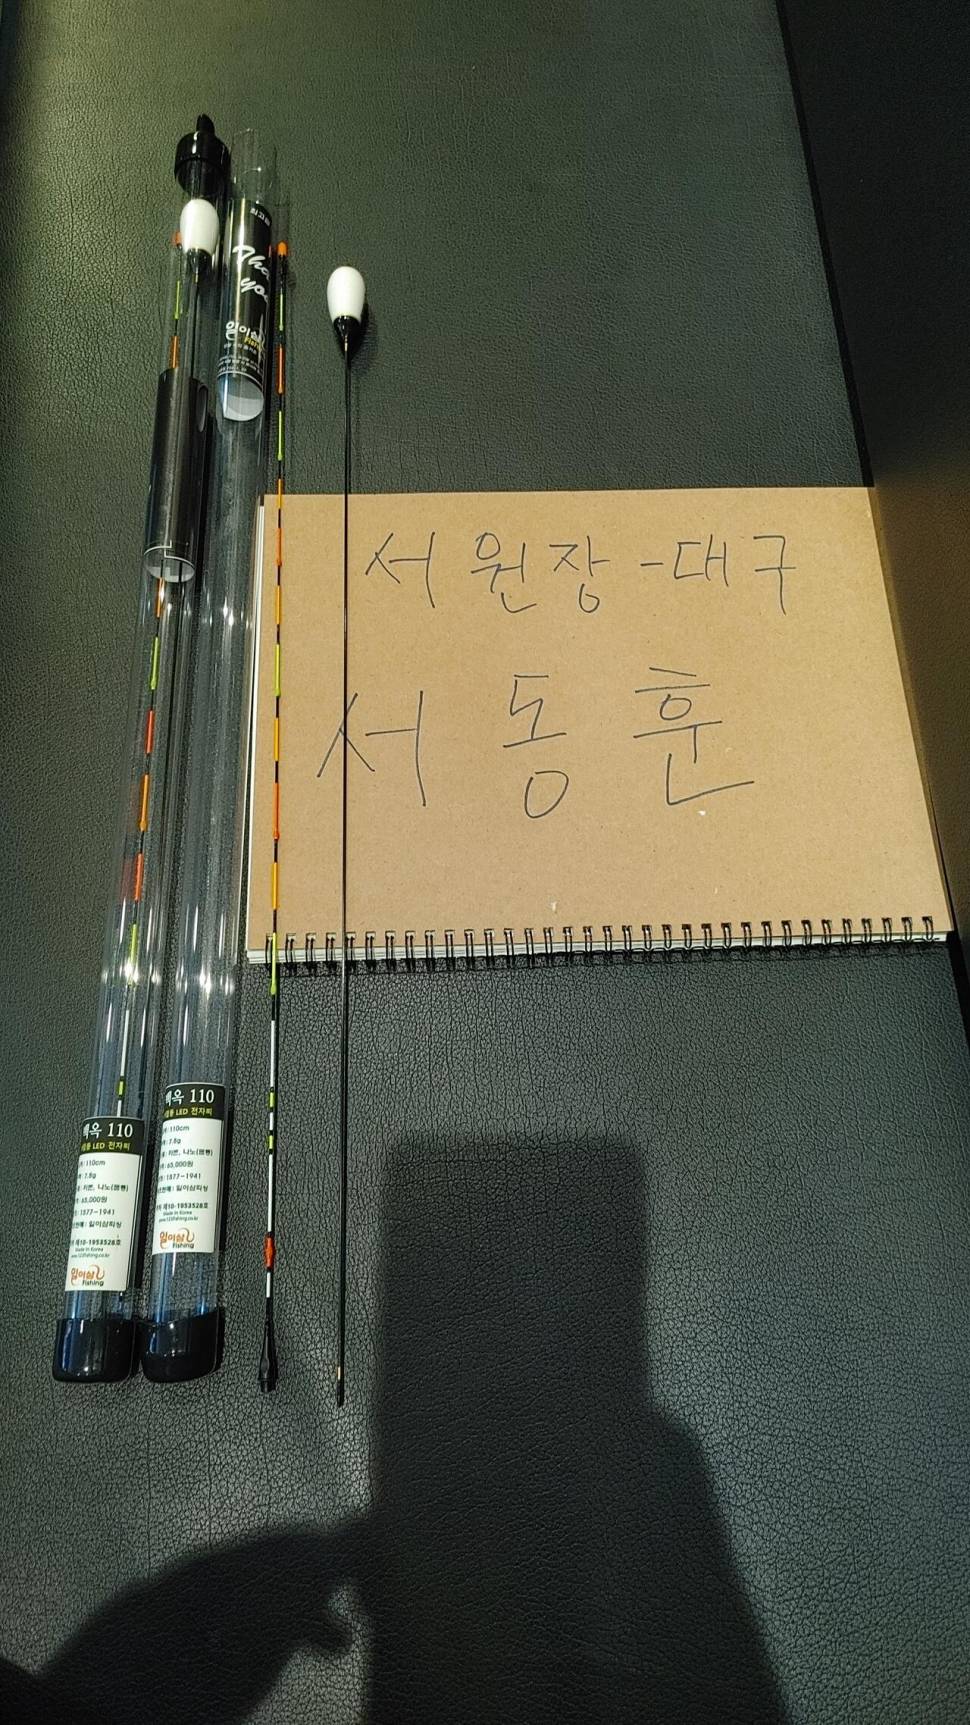 Thank
you
일이삼
Fishing
서 원장 - 대구
서 동 훈
백옥 110
LED 전자찌
110cm
7.8g
카본, 나노(몸통)
65,000원
1877-1941
일이삼피싱
제10-1953528호
Made in Korea
www.123fishing.co.kr
일이삼
Fishing
백옥 110
LED 전자찌
110cm
7.8g
카본, 나노(몸통)
65,000원
1877-1941
일이삼피싱
제10-1953528호
Made in Korea
www.123fishing.co.kr
일이삼
Fishing